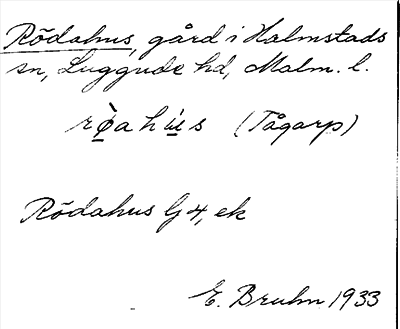 Rödahus, gård i Halmstads
sn, Luggude hd, Malm. l.
rø̀ahús (Tågarp)
Rödahus G 4, ek
E. Bruhn 1933